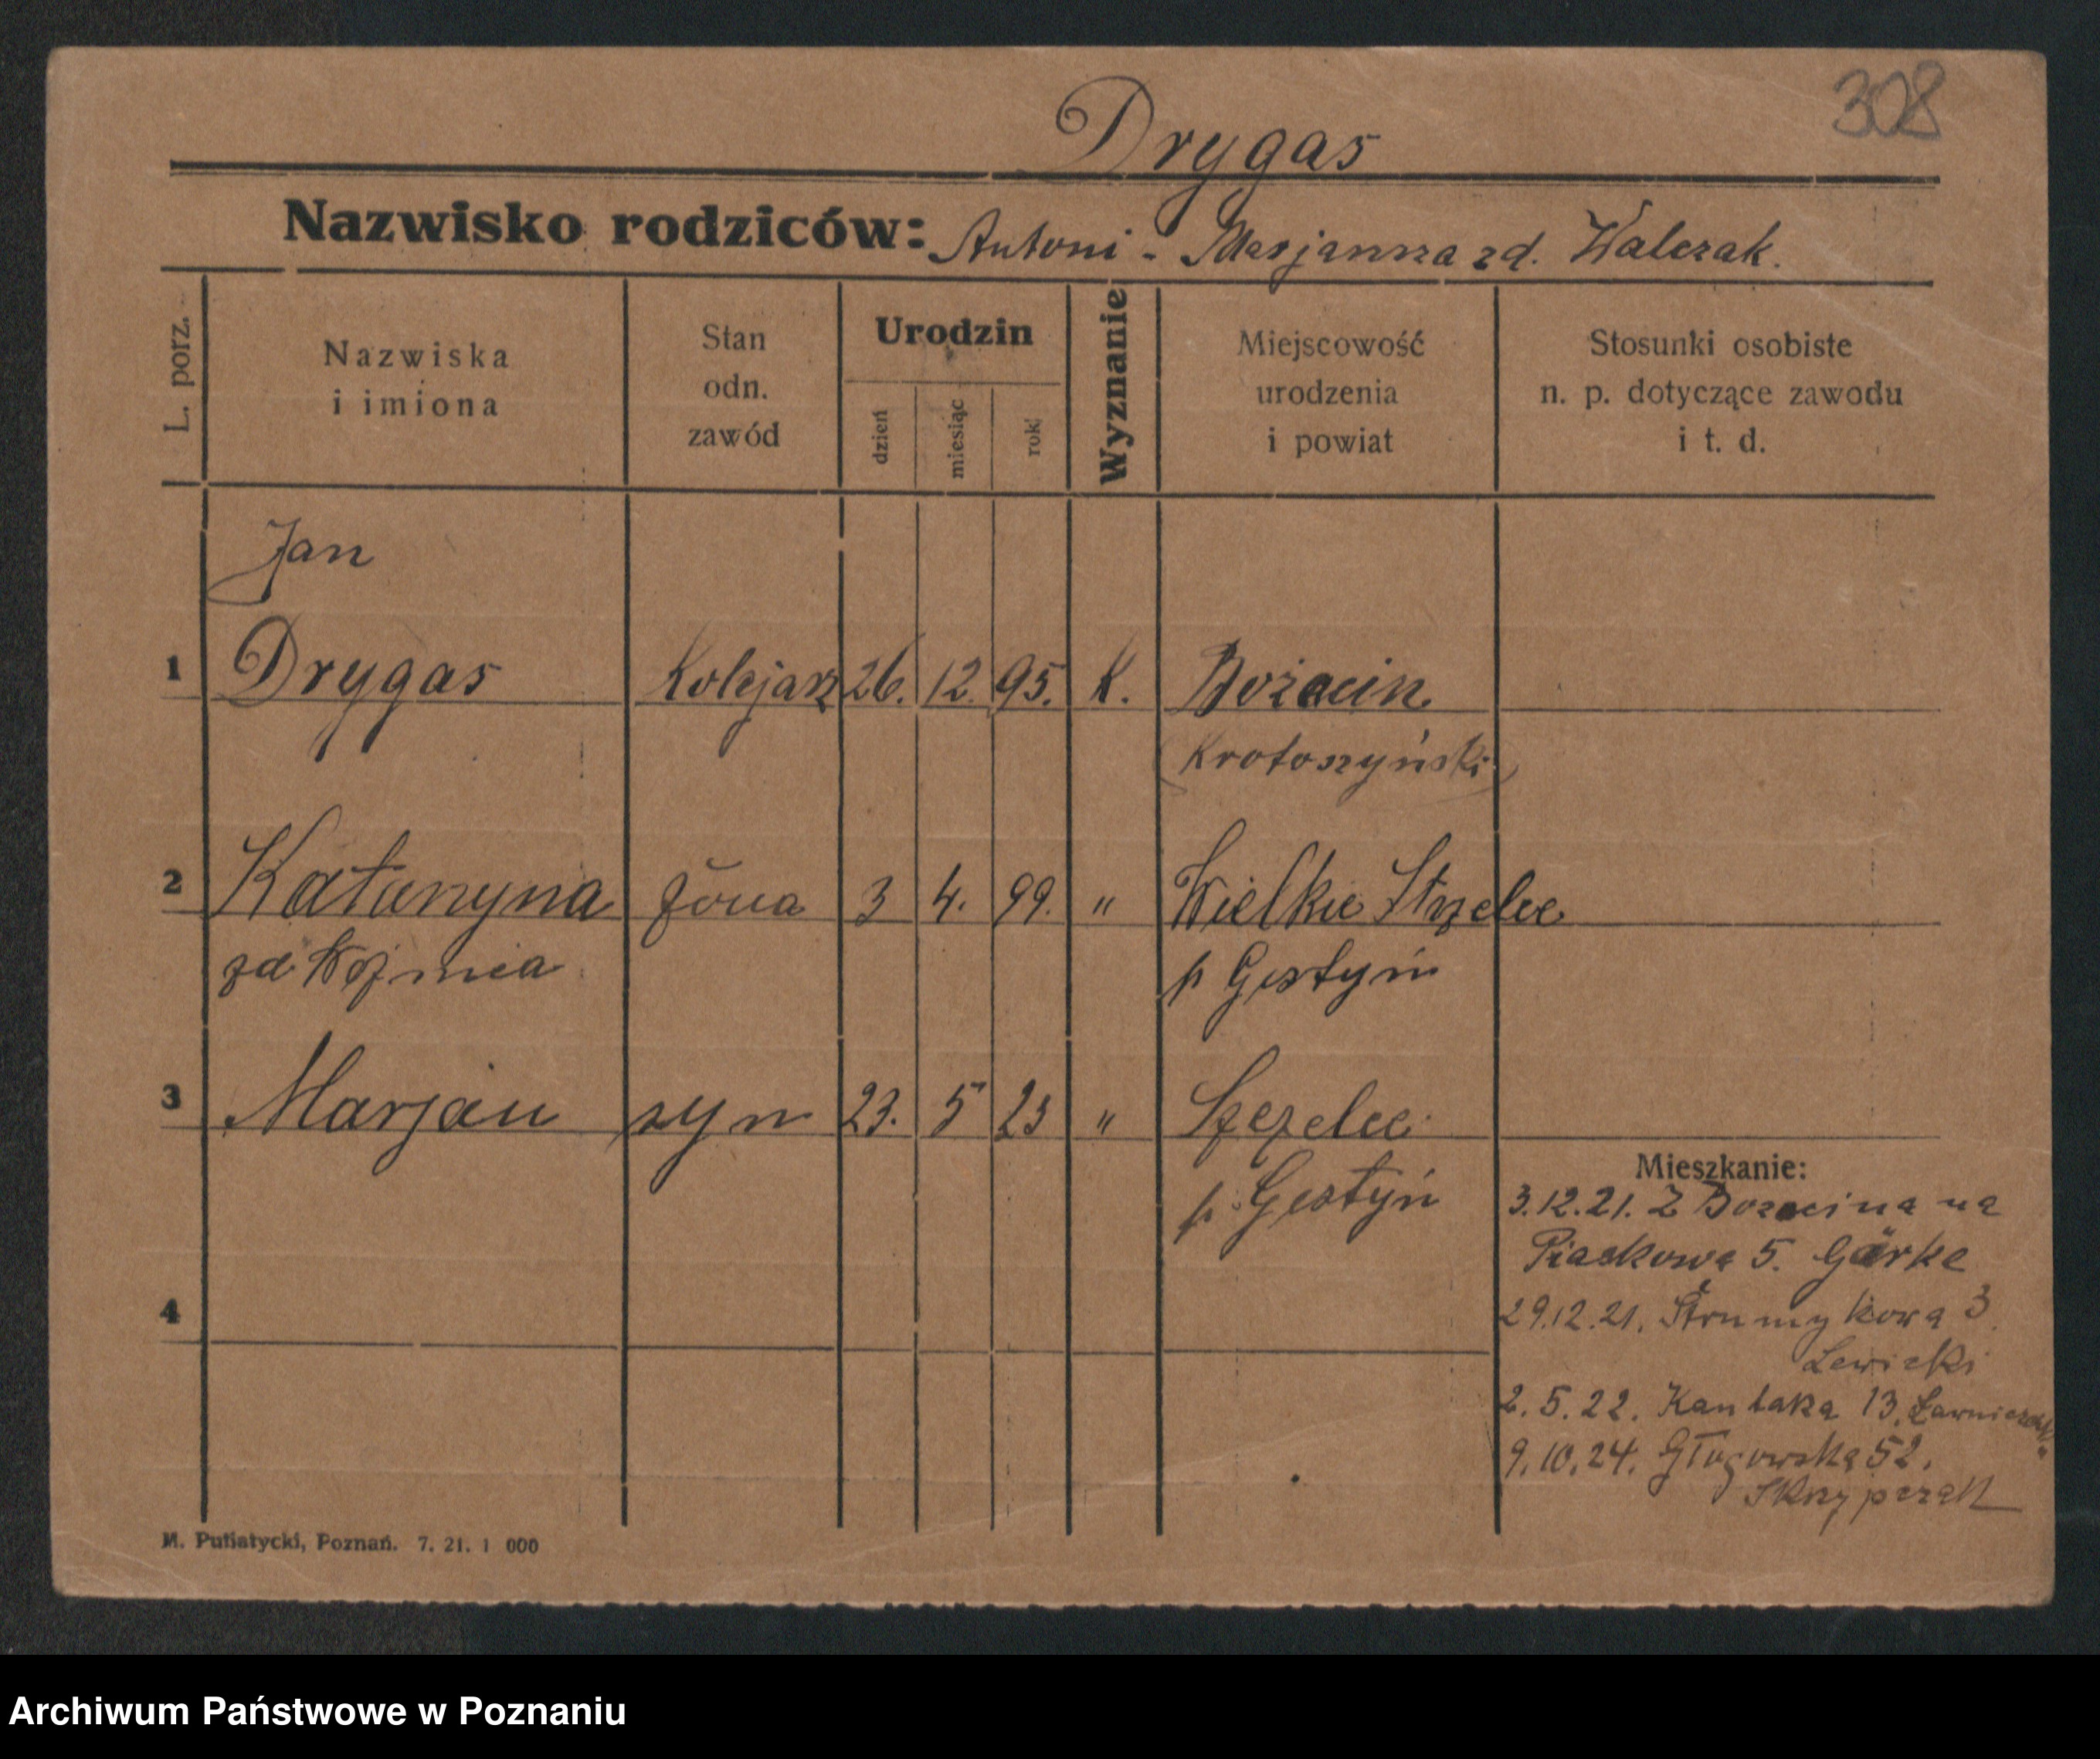 308
Drygas
Nazwisko rodziców: Antoni - Marjanna zd. Walczak.
L. porz.
Nazwiska
i imiona
Stan
odn.
zawód
Urodzin
dzień
miesiąc
rok
Wyznanie
Miejscowość
urodzenia
i powiat
Stosunki osobiste
n. p. dotyczące zawodu
i t. d.
Jan
1 Drygas Kolejarz 26. 12. 95. K. Bożacin
(Krotoszyński)
2 Katarzyna żona 3 4. 99. " Wielkie Strzelce
zd
p Gostyń
3 Marjan syn 23. 5 23 "
p. Gostyń
4
Mieszkanie:
3.12.21. Z Bozacina na
Piaskowa 5. Görke
29.12.21. Strumykowa 3
Lewicki
2.5.22. Kantaka 13.
9.10.24. Głogowska 52.
Skrzypczak
M. Putiatycki, Poznań. 7. 21. 1 000
Archiwum Państwowe w Poznaniu